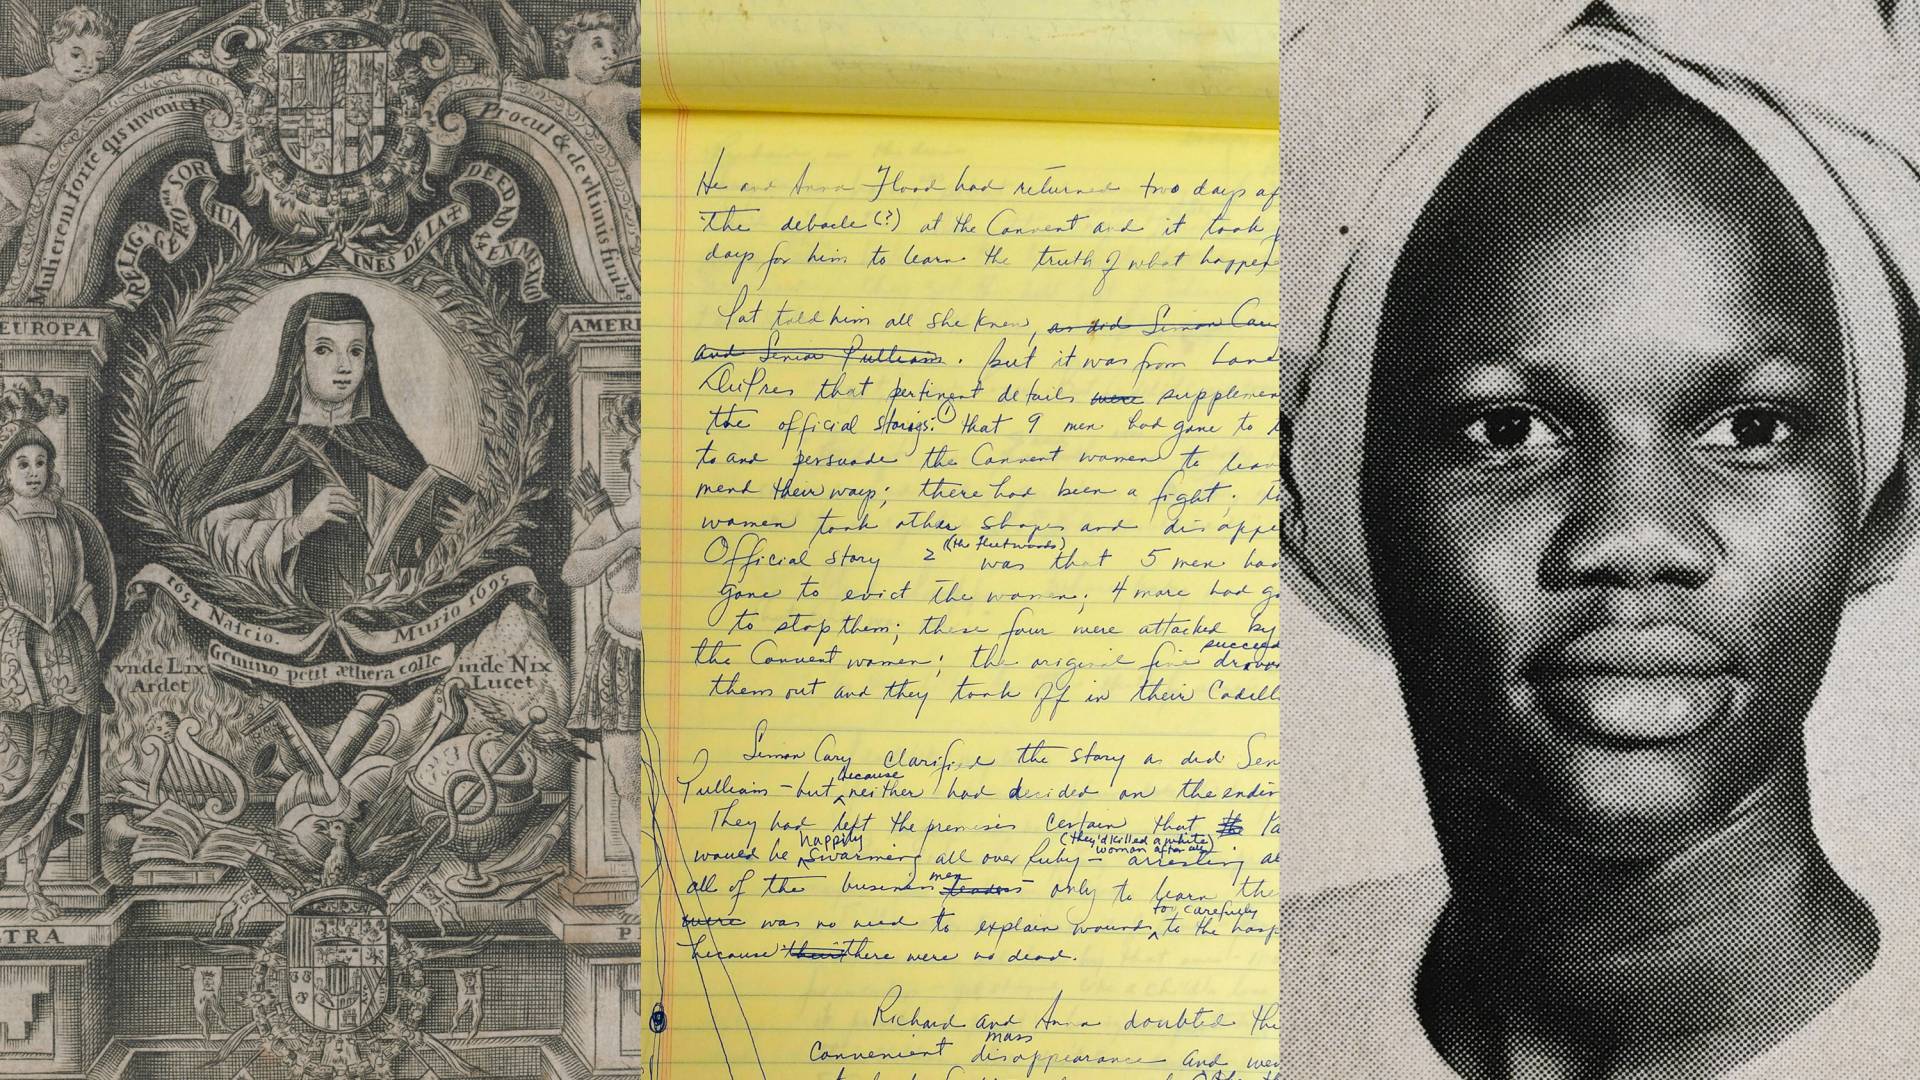 Mulierem forte quis inveniet
Procul & de vltimis finib.
RELIG.
GERO.mo SOR
IUANA INES DE LA
DE EDND
EN MEXICO
EUROPA
AMERI
1651 Nascio.
Murio 1695
Gemino petit æthera colle
vnde Lix
Ardet
inde Nix
Lucet
TRA
P
He and Anna Flood had returned two days af
the debacle (?) at the Convent and it took
days for him to learn the truth of what happen
Pat told him all she knew, as did Simon Cary
and Senior Pulliam. But it was from Lone
DuPres that pertinent details were supplemen
the official storys: ① that 9 men had gone to
to and persuade the Convent women to leav
mend their ways; there had been a fight; th
women took other shapes and disappe
Official story 2 (the Fleetwoods) was that 5 men had
gone to evict the women; 4 more had go
to stop them; these four were attacked by
the Convent women; the original five succeed drove
them out and they took off in their Cadill
Simon Cary clarified the story as did Sen
Pulliam - but because neither had decided on the endin
They had left the premises certain that th
would be happily swarming all over Ruby - (they'd killed a white woman after all) arresting al
all of the business men leaders only to learn the
were was no need to explain wounds too carefully to the hosp
because their there were no dead.
Richard and Anna doubted the
convenient mass disappearance and wen